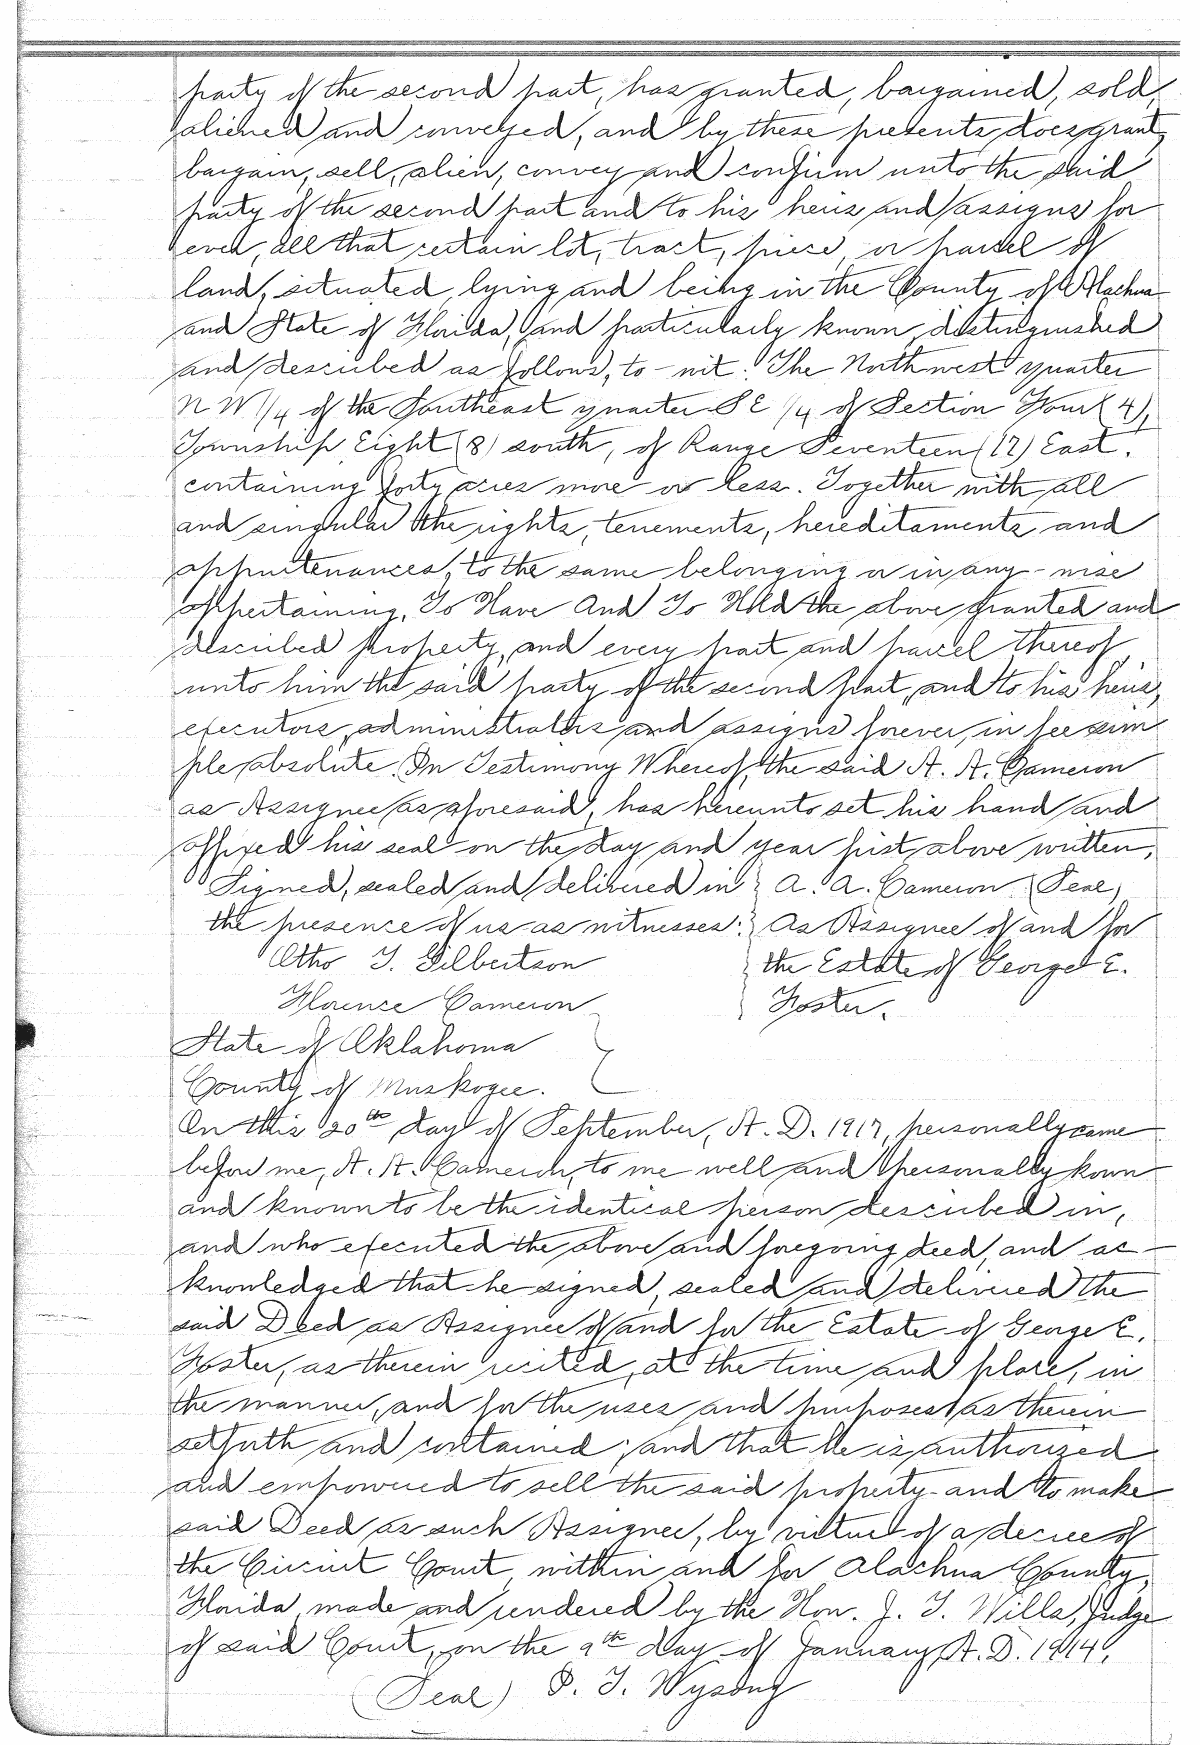 party of the second part, has granted, bargained, sold,
aliened and conveyed, and by these presents does grant,
bargain, sell, alien, convey and confirm unto the said
party of the second part and to his heirs and assigns for
ever, all that certain lot, tract, piece, or parcel of
land, situated, lying and being in the County of Alachua
and State of Florida, and particularly known, distinguished
and described as follows, to-wit: The Northwest quarter
NW 1/4 of the Southeast quarter SE 1/4 of Section Four (4),
Township Eight (8) south, of Range Seventeen (17) East.
containing forty acres more or less. Together with all
and singular the rights, tenements, hereditaments, and
appurtenances, to the same belonging or in any-wise
appertaining, To Have And To Hold the above granted and
described property, and every part and parcel thereof,
unto him the said party of the second part, and to his heirs,
executors, administrators and assigns forever, in fee sim
ple absolute. In Testimony Whereof, the said A. A. Cameron
as Assignee as aforesaid, has hereunto set his hand and
affixed his seal on the day and year first above written.
Signed, sealed and delivered in A. A. Cameron (Seal)
the presence of us as witnesses: As Assignee of and for
Otho T. Gilbertson the Estate of George E.
Florence Cameron Foster.
State of Oklahoma
County of Muskogee.
On this 20th day of September, A. D. 1917, personally came
before me, A. A. Cameron, to me well and personally kown
and known to be the identical person described in,
and who executed the above and foregoing deed, and ac-
knowledged that he signed, sealed and delivered the
said Deed as Assignee of and for the Estate of George E.
Foster, as therein recited, at the time and place, in
the manner, and for the uses and purposes as therein
setforth and contained; and that he is authorized
and empowered to sell the said property and to make
said Deed as such Assignee, by virtue of a decree of
the Circuit Court, within and for Alachua County,
Florida, made and rendered by the Hon. J. T. Wills, Judge
of said Court, on the 9th day of January, A. D. 1914.
(Seal) P. T. Wysong